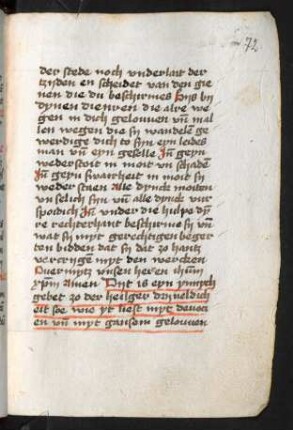 72
der stede noch vnderlait der
tzijden en scheidet van den gie
nen die du beschirmes Bys by
dynen dienren die alre we
gen in dich gelouuen vn̄ in al
len wegen die sy wandelē ge
werdige dich to syn eyn leides
man vn̄ eyn geselle In̄ geyn
wederstoit in moit vn schadē
In̄ geyn swairheit in moit sy
weder staen Alle dynck moiten
vn selich syn vn̄ alle dynck vur
spoidich In̄ vnder die hulpe dy
re rechterhant beschirme sy vn̄
wat sy myt gerechtigen beger
ten bidden dat sy dit zo hantz
vercrygen myt den wercken
Ouermytz vnsen heren ihm̄
xp̄m Amen Dyt is eyn ynnych
gebet zo der heilger dryueldich
eit soe wie yt liest myt deuoci
en vn̄ myt gansem gelouuen